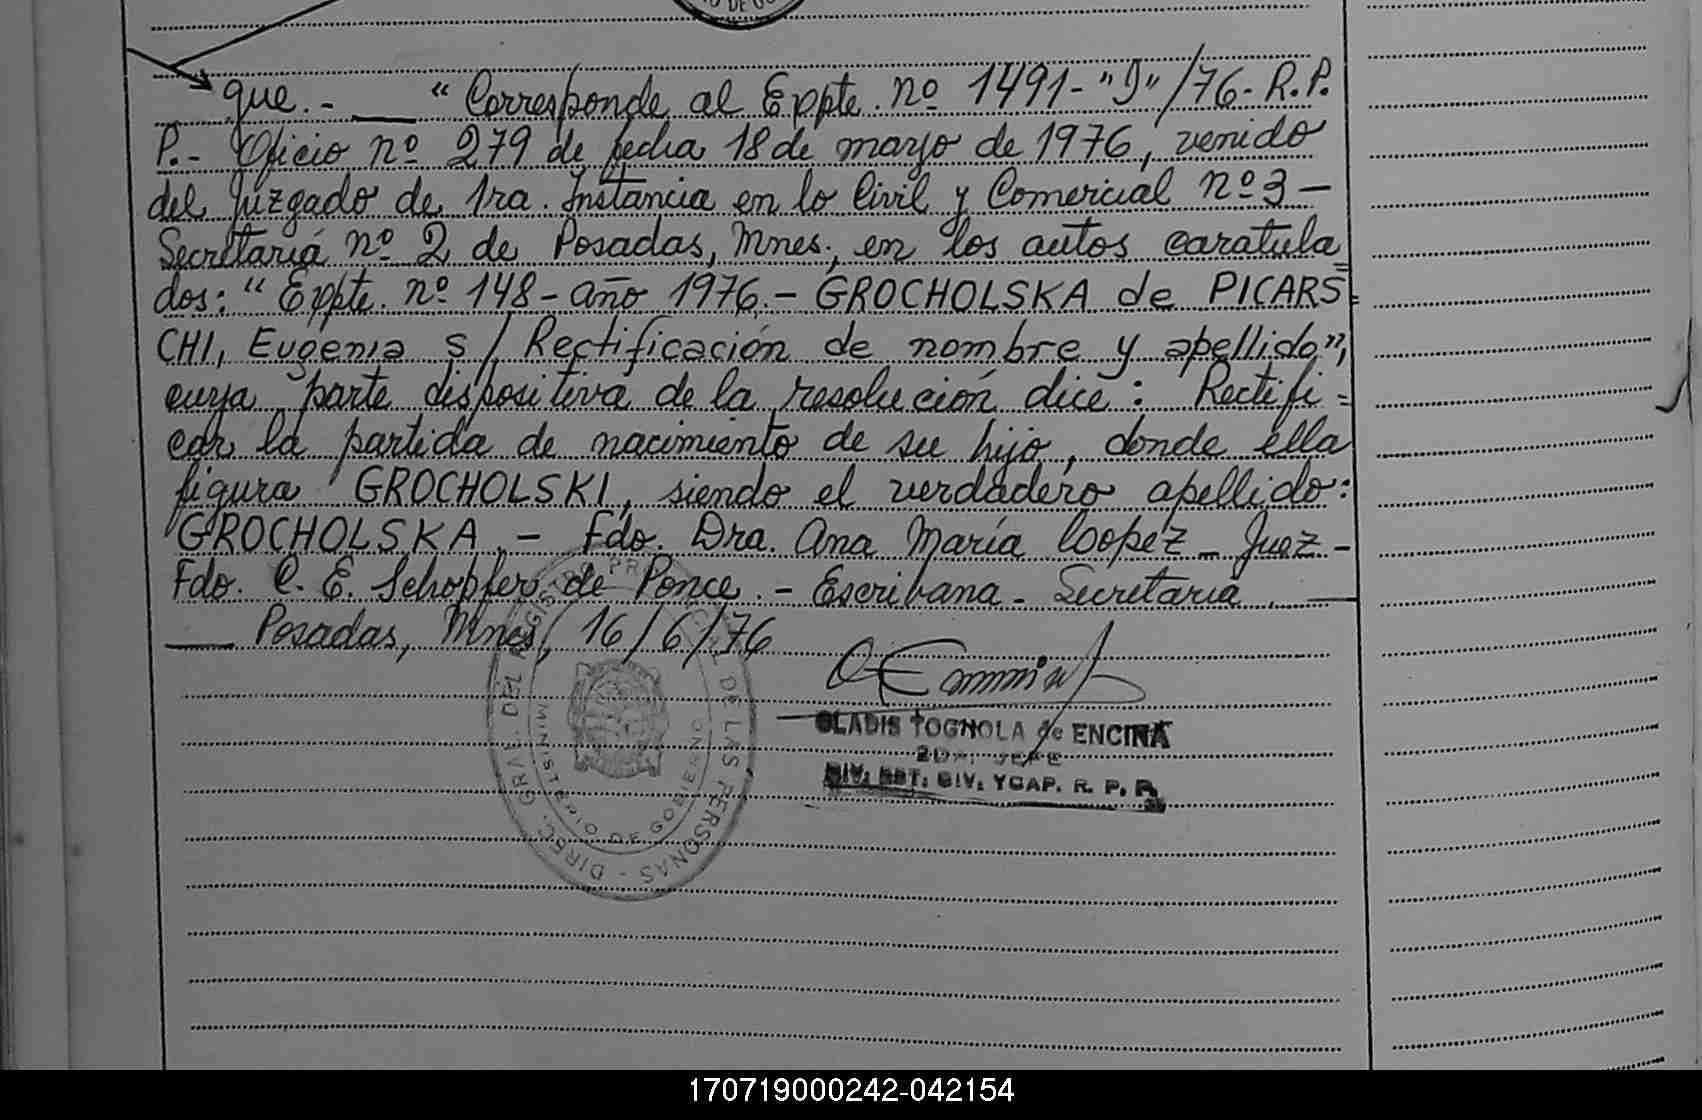 que.- "Corresponde al Expte. nº 1491-"J"/76-R.P.
P.- Oficio nº 279 de fecha 18 de mayo de 1976, venido
del Juzgado de 1ra. Instancia en lo Civil y Comercial nº 3 -
Secretaría nº 2 de Posadas, Mnes., en los autos caratula=
dos: "Expte. nº 148 - año 1976.- GROCHOLSKA de PICARS=
CHI, Eugenia s/ Rectificación de nombre y apellido",
cuya parte dispositiva de la resolución dice: Rectifi=
car la partida de nacimiento de su hijo, donde ella
figura GROCHOLSKI, siendo el verdadero apellido:
GROCHOLSKA.- Fdo. Dra. Ana María Loopez - Juez -
Fdo. C. E. Schopfer de Ponce.- Escribana - Secretaria.
Posadas, Mnes, 16/6/76
GLADIS TOGNOLA de ENCINA
2DA. JEFE
DIV. EST. CIV. YCAP. R. P. P.
DIREC. GRAL. DEL REGISTRO PROVINCIAL DE LAS PERSONAS -
MINISTERIO DE GOBIERNO
170719000242-042154